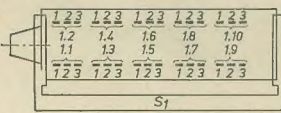 1 2 3 1 2 3 1 2 3 1 2 3 1 2 3
1.2 1.4 1.6 1.8 1.10
1.1 1.3 1.5 1.7 1.9
1 2 3 1 2 3 1 2 3 1 2 3 1 2 3
S1